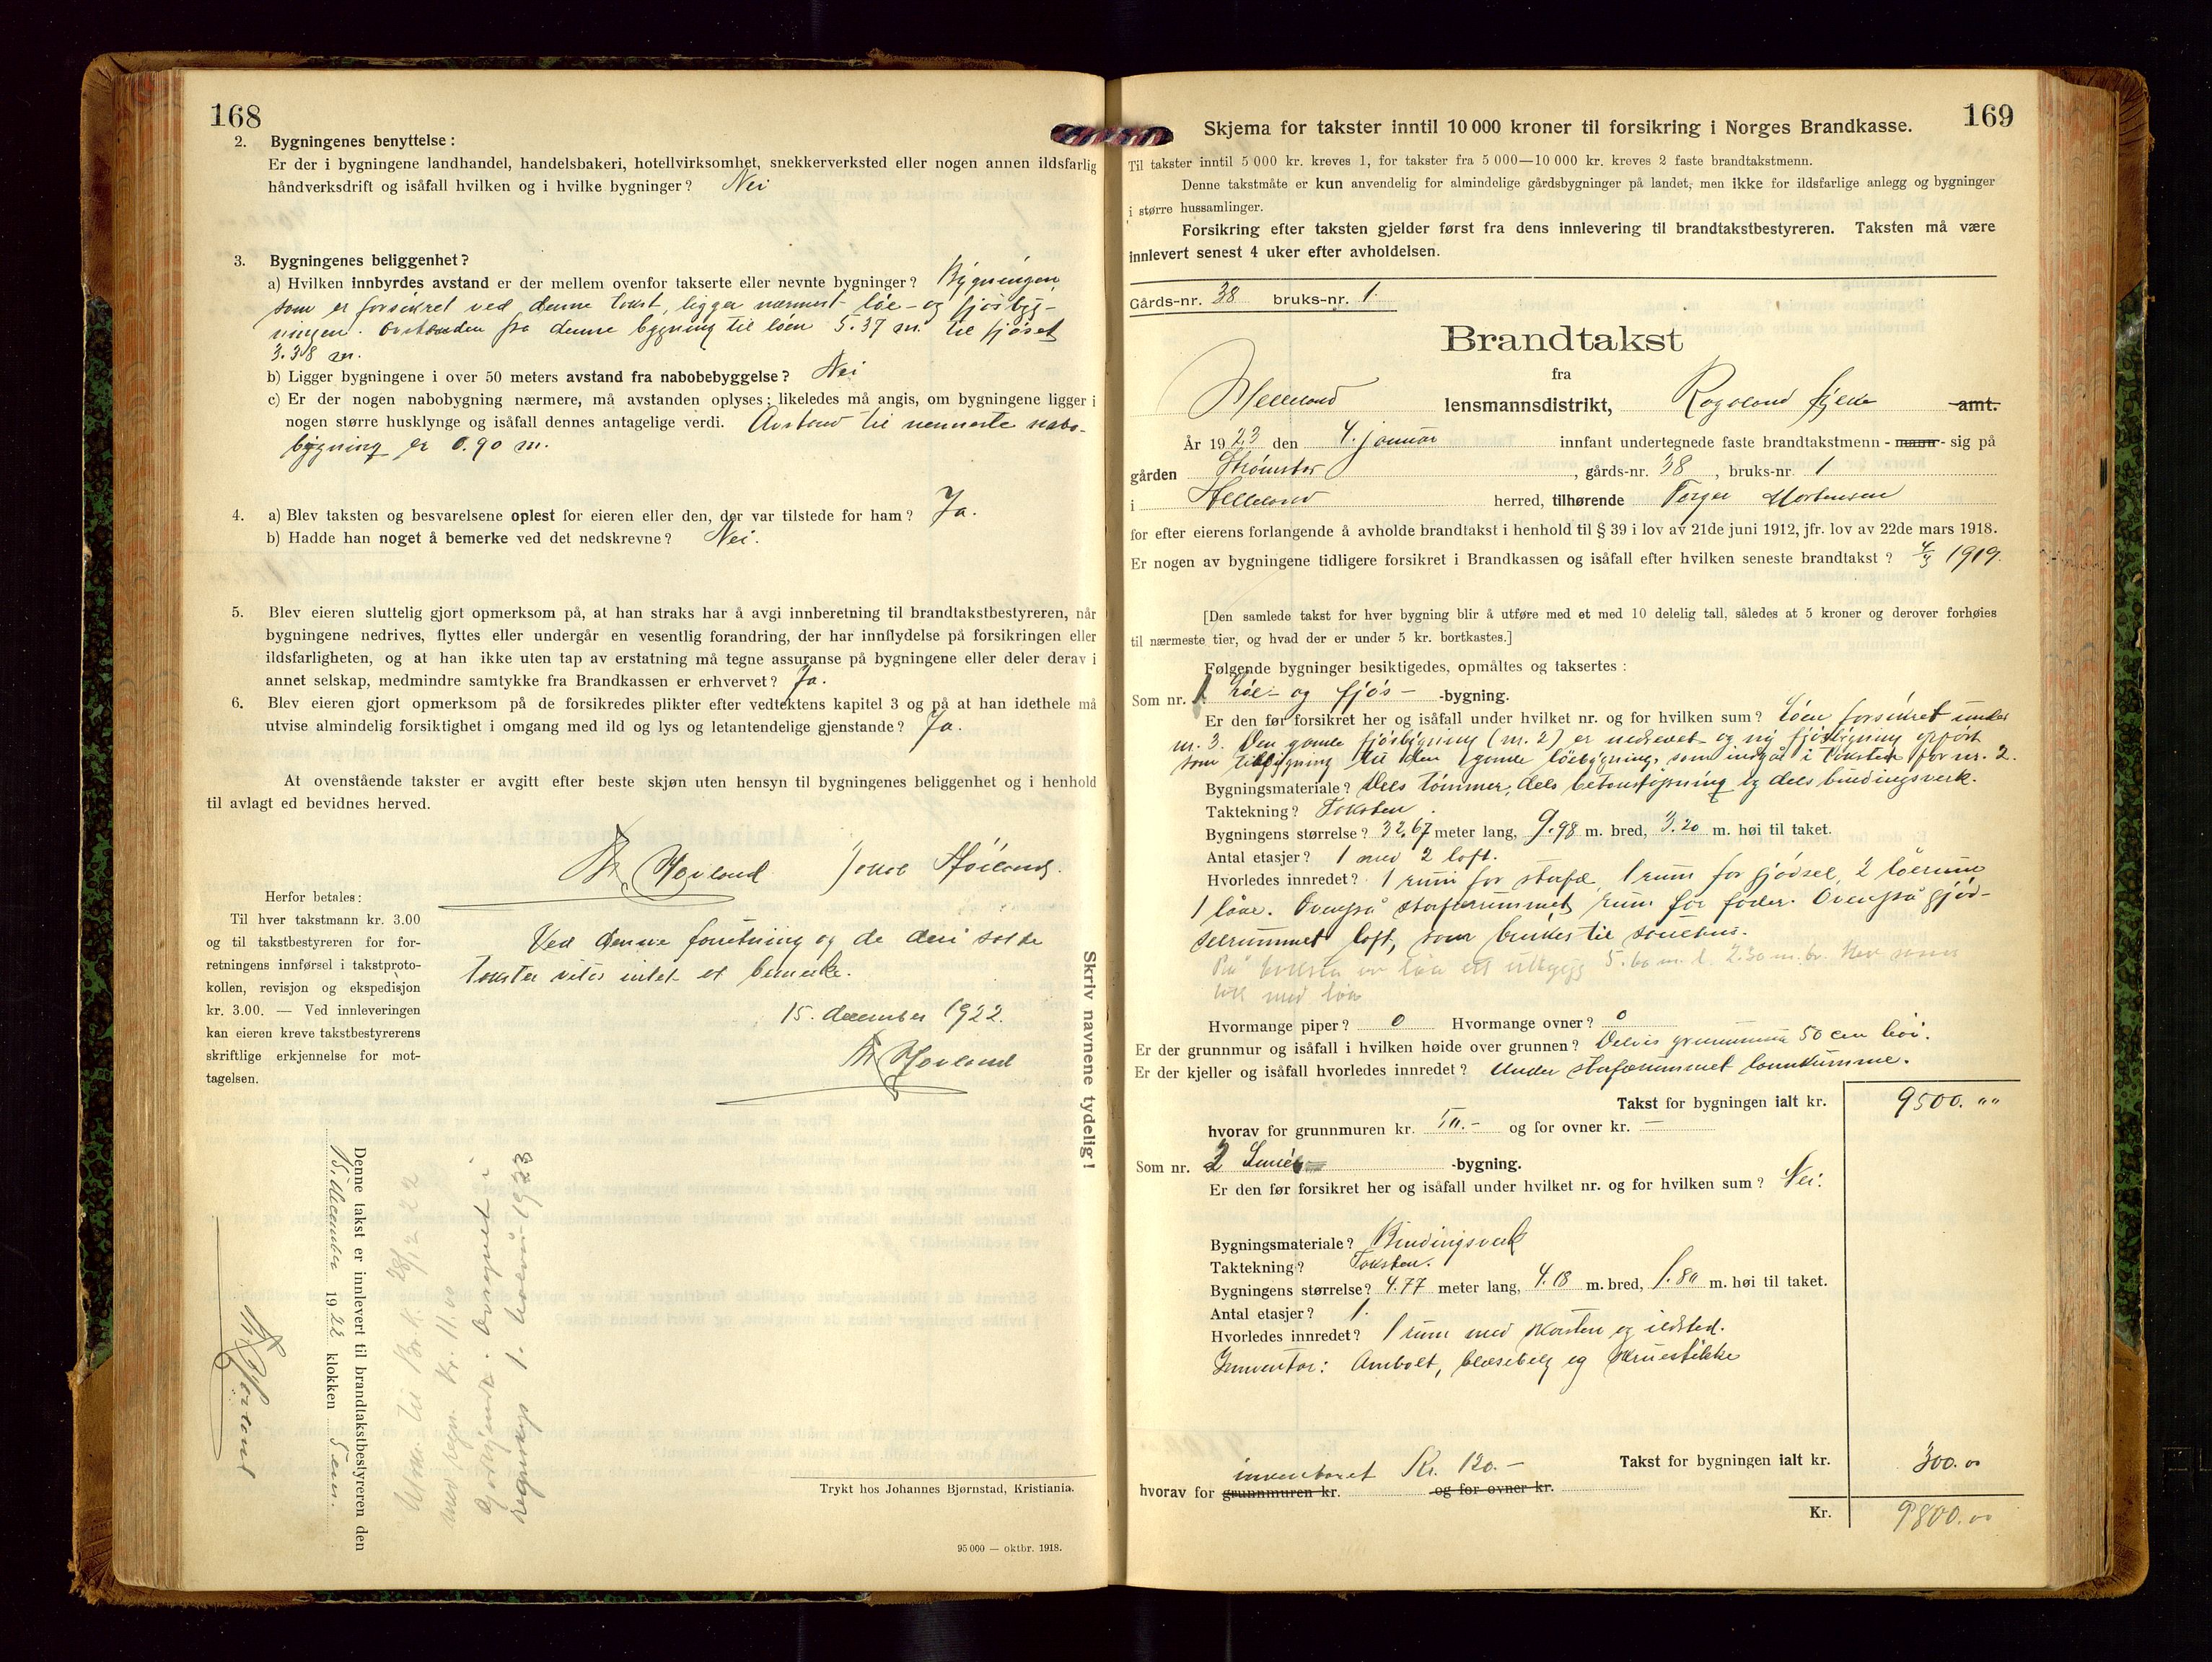 168
2. Bygningenes benyttelse :
Er der i bygningene landhandel, handelsbakeri, hotellvirksomhet, snekkerverksted eller nogen annen ildsfarlig
håndverksdrift og isåfall hvilken og i hvilke bygninger? Nei
3. Bygningenes beliggenhet?
a) Hvilken innbyrdes avstand er der mellem ovenfor takserte eller nevnte bygninger? Bygningen
som er forsikret ved denne takst, ligger nærmest løe- og fjøsbyg-
ningen. Avstanden fra denne bygning til løen 5.37 m. til fjøset
3.38 m.
b) Ligger bygningene i over 50 meters avstand fra nabobebyggelse? Nei
c) Er der nogen nabobygning nærmere, må avstanden oplyses; likeledes må angis, om bygningene ligger i
nogen større husklynge og isåfall dennes antagelige verdi. Avstand til nærmeste nabo-
bygning er 0.90 m.
4. a) Blev taksten og besvarelsene oplest for eieren eller den, der var tilstede for ham? Ja.
b) Hadde han noget å bemerke ved det nedskrevne? Nei.
5. Blev eieren sluttelig gjort opmerksom på, at han straks har å avgi innberetning til brandtakstbestyreren, når
bygningene nedrives, flyttes eller undergår en vesentlig forandring, der har innflydelse på forsikringen eller
ildsfarligheten, og at han ikke uten tap av erstatning må tegne assuranse på bygningene eller deler derav i
annet selskap, medmindre samtykke fra Brandkassen er erhvervet? Ja.
6. Blev eieren gjort opmerksom på de forsikredes plikter efter vedtektens kapitel 3 og på at han idethele må
utvise almindelig forsiktighet i omgang med ild og lys og letantendelige gjenstande? Ja.
At ovenstående takster er avgitt efter beste skjøn uten hensyn til bygningenes beliggenhet og i henhold
til avlagt ed bevidnes herved.
Hovland Jakob
Herfor betales:
Til hver takstmann kr. 3.00
og til takstbestyreren for for-
retningens innførsel i takstproto-
kollen, revisjon og ekspedisjon
kr. 3.00. — Ved innleveringen
kan eieren kreve takstbestyrerens
skriftlige erkjennelse for mot-
tagelsen.
Ved denne forretning og de deri satte
takster vites intet at bemerke.
15. december 1922.
Hovland
Skriv navnene tydelig!
Denne takst er innlevert til brandtakstbestyreren den
15. december 1922 klokken 5 em.
Hovland
til Br.k. 28/12 22
med regn. Kr. 11.00
Godkjent. Avregnet i
regnskap 1. halvår 1923
Trykt hos Johannes Bjørnstad, Kristiania.
95 000 — oktbr. 1918.
169
Skjema for takster inntil 10 000 kroner til forsikring i Norges Brandkasse.
Til takster inntil 5 000 kr. kreves 1, for takster fra 5 000—10 000 kr. kreves 2 faste brandtakstmenn.
Denne takstmåte er kun anvendelig for almindelige gårdsbygninger på landet, men ikke for ildsfarlige anlegg og bygninger
i større hussamlinger.
Forsikring efter taksten gjelder først fra dens innlevering til brandtakstbestyreren. Taksten må være
innlevert senest 4 uker efter avholdelsen.
Gårds-nr. 38 bruks-nr. 1.
Brandtakst
fra
Helleland lensmannsdistrikt, Rogaland fylke amt.
År 1923 den 4. januar innfant undertegnede faste brandtakstmenn - mann - sig på
gården , gårds-nr. 38, bruks-nr. 1
i Helleland herred, tilhørende Torger Mortensen
for efter eierens forlangende å avholde brandtakst i henhold til § 39 i lov av 21de juni 1912, jfr. lov av 22de mars 1918.
Er nogen av bygningene tidligere forsikret i Brandkassen og isåfall efter hvilken seneste brandtakst? 4/3 1919.
[Den samlede takst for hver bygning blir å utføre med et med 10 delelig tall, således at 5 kroner og derover forhøies
til nærmeste tier, og hvad der er under 5 kr. bortkastes.]
Følgende bygninger besiktigedes, opmåltes og taksertes :
Som nr. 1 Løe- og fjøs- -bygning.
Er den før forsikret her og isåfall under hvilket nr. og for hvilken sum? Løen forsikret under
nr. 3. Den gamle fjøsbygning (nr. 2) er nedrevet og ny fjøsbygning opført
som tilbygning til den gamle løebygning, som indgår i taksten for nr. 2.
Bygningsmateriale? Dels tømmer, dels betonstøpning og dels bindingsverk.
Taktekning? Taksten.
Bygningens størrelse? 32.67 meter lang, 9.98 m. bred, 3.20 m. høi til taket.
Antal etasjer? 1 med 2 loft.
Hvorledes innredet? 1 rum for storfæ, 1 rum for gjødsel, 2 løerum
1 låve. Ovenpå storfærummet rum for foder. Ovenpå gjød-
selrummet loft, som brukes til sauehus.
På av løa ett utbygg 5.60 m. l. 2.30 m. br. samme
med løa
Hvormange piper? 0 Hvormange ovner? 0
Er der grunnmur og isåfall i hvilken høide over grunnen? Delvis grunnmur 50 cm høi.
Er der kjeller og isåfall hvorledes innredet? Under storfærummet landkumme.
Takst for bygningen ialt kr. 9500. „„
hvorav for grunnmuren kr. og for ovner kr. —
Som nr. 2 Smie -bygning.
Er den før forsikret her og isåfall under hvilket nr. og for hvilken sum? Nei.
Bygningsmateriale? Bindingsverk
Taktekning? Taksten.
Bygningens størrelse? 4.77 meter lang, 4.18 m. bred, 1.80 m. høi til taket.
Antal etasjer? 1.
Hvorledes innredet? 1 rum med skorsten og ildsted.
Inventar: Ambolt, blæsebelg og skruestikke
Takst for bygningen ialt kr. 300.00
hvorav for grunnmuren kr. inventaret Kr. 120.- og for ovner kr.
Kr. 9800.00